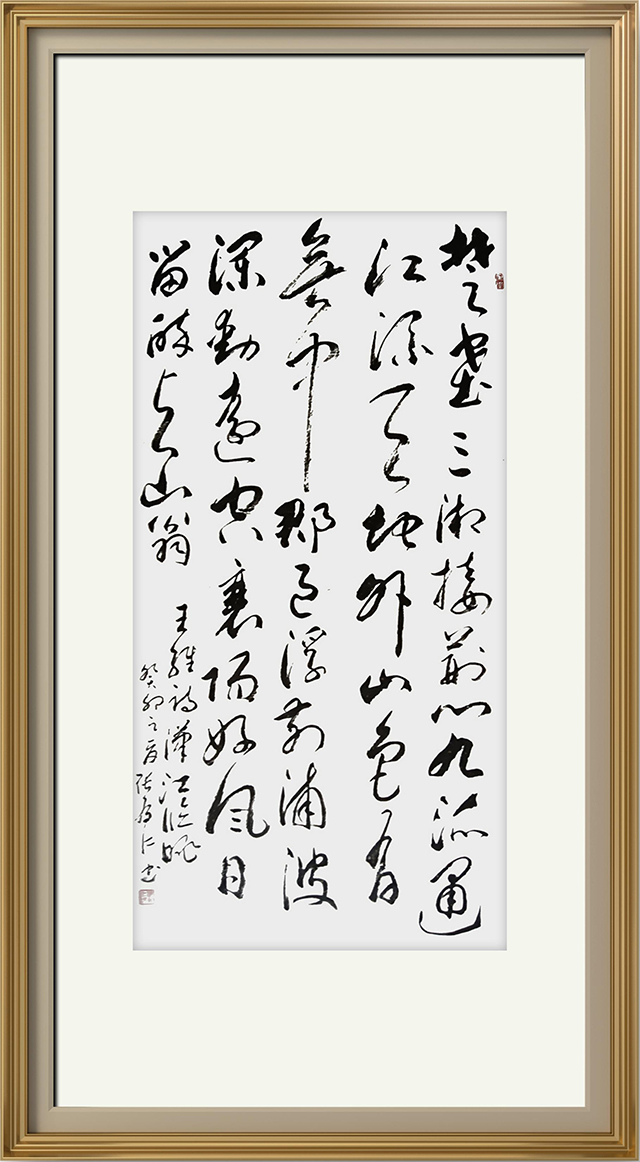 楚塞三湘接荆门九派通
江流天地外山色有
無中郡邑浮前浦波
澜動遠空襄陽好風日
留醉与山翁
王維詩漢江临眺
癸卯之夏張仁书